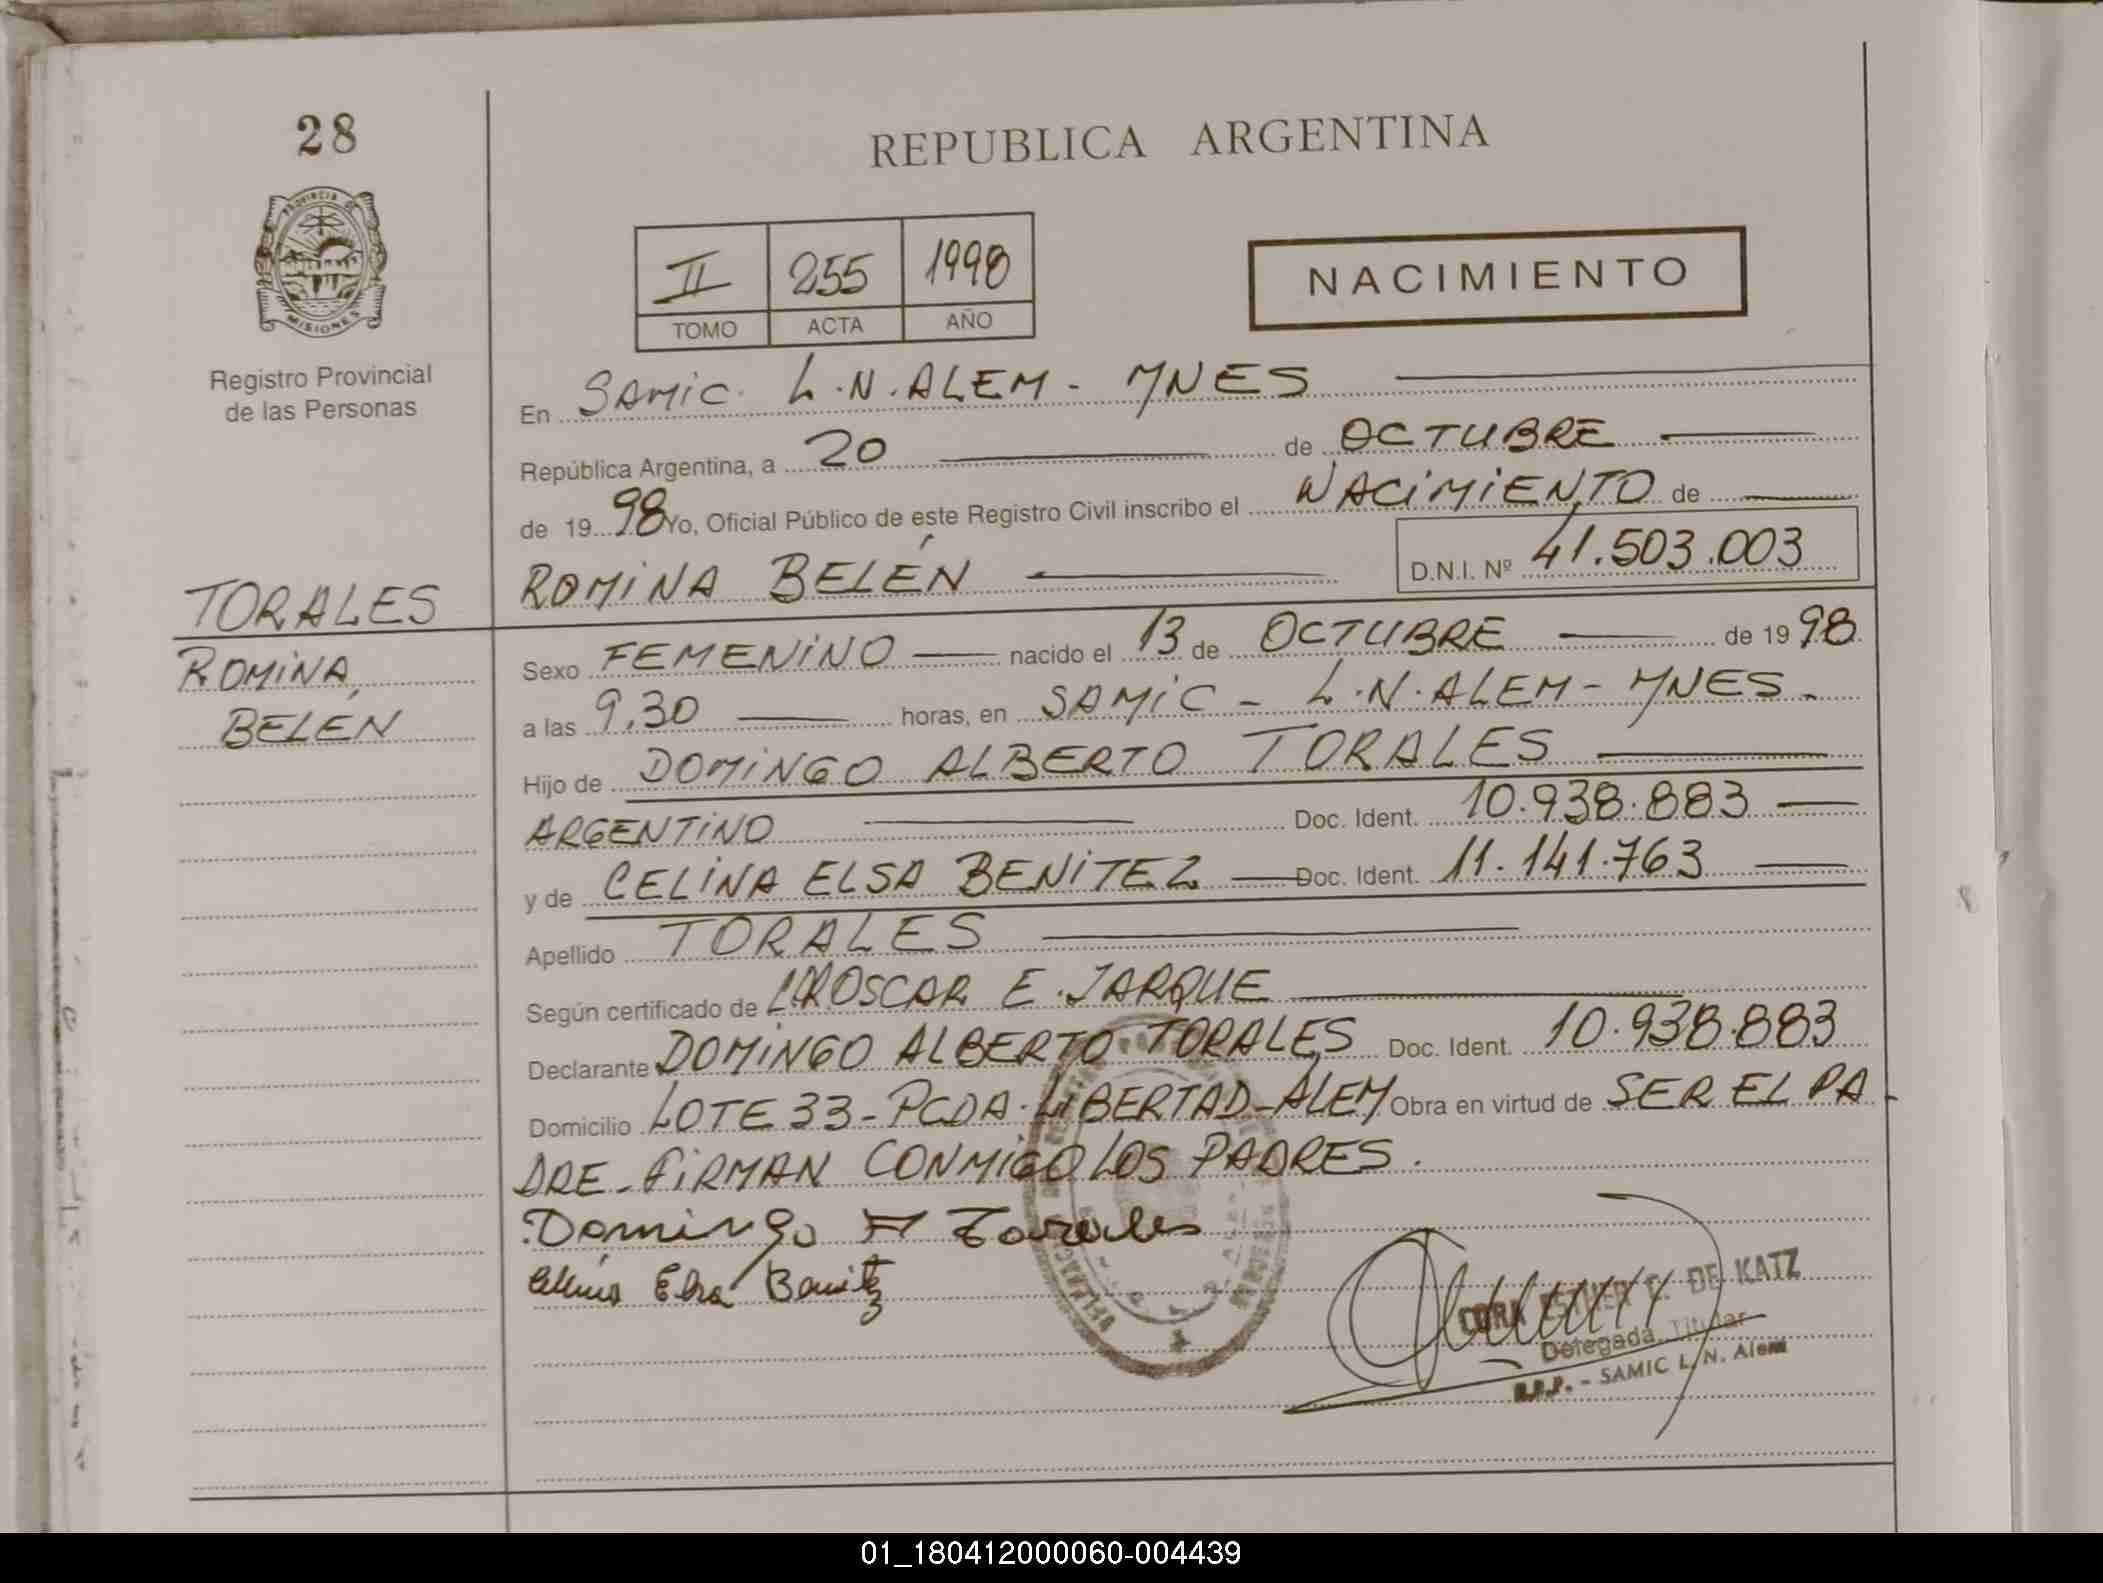 28
REPUBLICA ARGENTINA
PROVINCIA DE
MISIONES
II 255 1998
TOMO ACTA AÑO
NACIMIENTO
Registro Provincial
de las Personas
En SAMIC. L.N.ALEM - MNES
República Argentina, a 20 de OCTUBRE
de 19 98 Yo, Oficial Público de este Registro Civil inscribo el NACIMIENTO de
ROMINA BELÉN D.N.I. Nº 41.503.003
TORALES
ROMINA,
BELÉN
Sexo FEMENINO nacido el 13 de OCTUBRE de 19 98
a las 9.30 horas, en SAMIC - L.N.ALEM - MNES -
Hijo de DOMINGO ALBERTO TORALES
ARGENTINO Doc. Ident. 10.938.883
y de CELINA ELSA BENITEZ Doc. Ident. 11.141.763
Apellido TORALES
Según certificado de OSCAR E. JARQUE
Declarante DOMINGO ALBERTO TORALES Doc. Ident. 10.938.883
Domicilio LOTE 33 - PCDA. LIBERTAD - ALEM Obra en virtud de SER EL PA-
DRE - FIRMAN CONMIGO LOS PADRES.
Domingo A Torales
Celina Elsa Benitez
CORA ESTHER DE KATZ
Delegada Titular
R.P.P. - SAMIC L. N. Alem
01_180412000060-004439